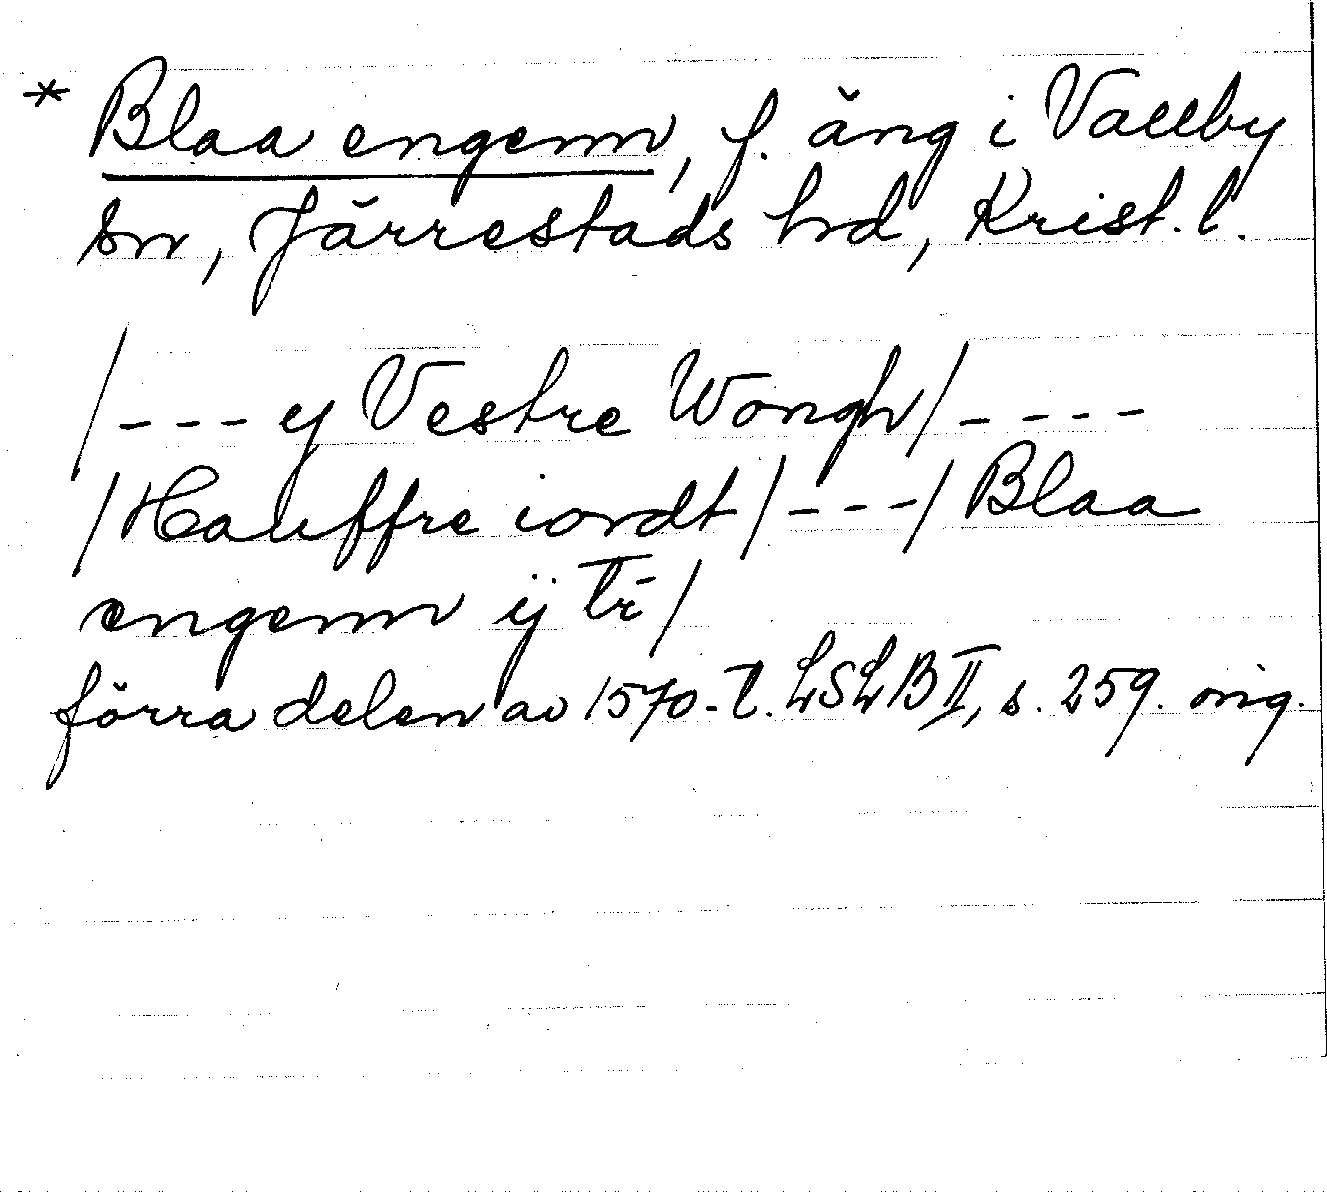 * Blaa engenn, f. äng i Vallby
sn, Järrestads hd, Krist. l.
/--- y Vestre Wongh/----
/Hauffre iordt/---/Blaa
engenn ÿ tr̄/
förra delen av 1570-t. LSLB II, s. 259. orig.